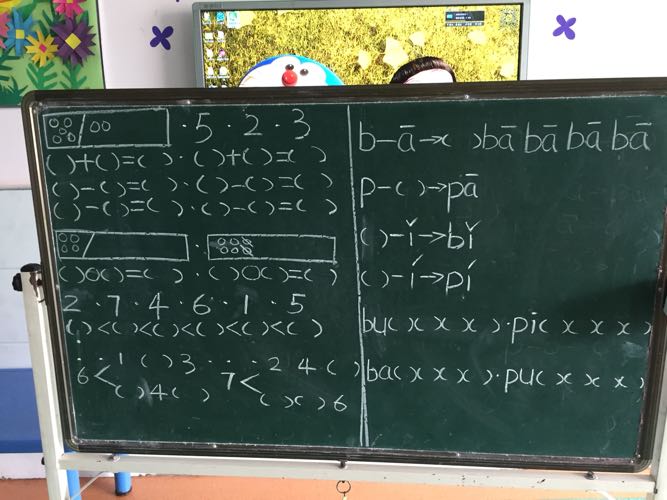 · 5 · 2 · 3
( )+( )=( ) · ( )+( )=( )
( )-( )=( ) · ( )-( )=( )
( )-( )=( ) · ( )-( )=( )
( )○( )=( ) · ( )○( )=( )
2 · 7 · 4 · 6 · 1 · 5
( )<( )<( )<( )<( )<( )
1 ( ) 3 · · · 2 4 ( )
6< 7<
( ) 4 ( ) ( ) ( ) 6
b-ā→( ) bā bā bā bā
p-( )→pā
( )-ǐ→bǐ
( )-í→pí
bu( x x x ) · pi( x x x )
ba( x x x ) · pu( x x x )